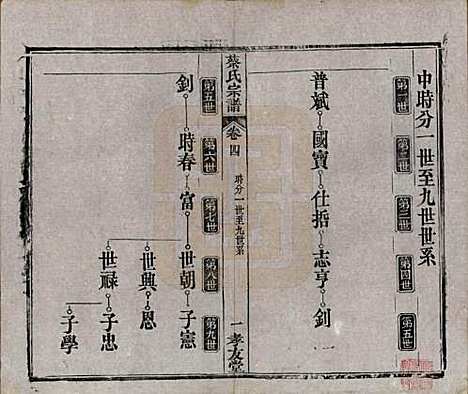 中時分一世至九世世系
第一世 第二世 第三世 第四世 第五世
普斌 國寶 仕哲 志亨 釗
蔡氏宗譜
卷四
時分一世至九世系
一
孝友堂
第五世 第六世 第七世 第八世 第九世
釗 時春 富 世朝 子憲
世興 恩
世祿 子忠
子學